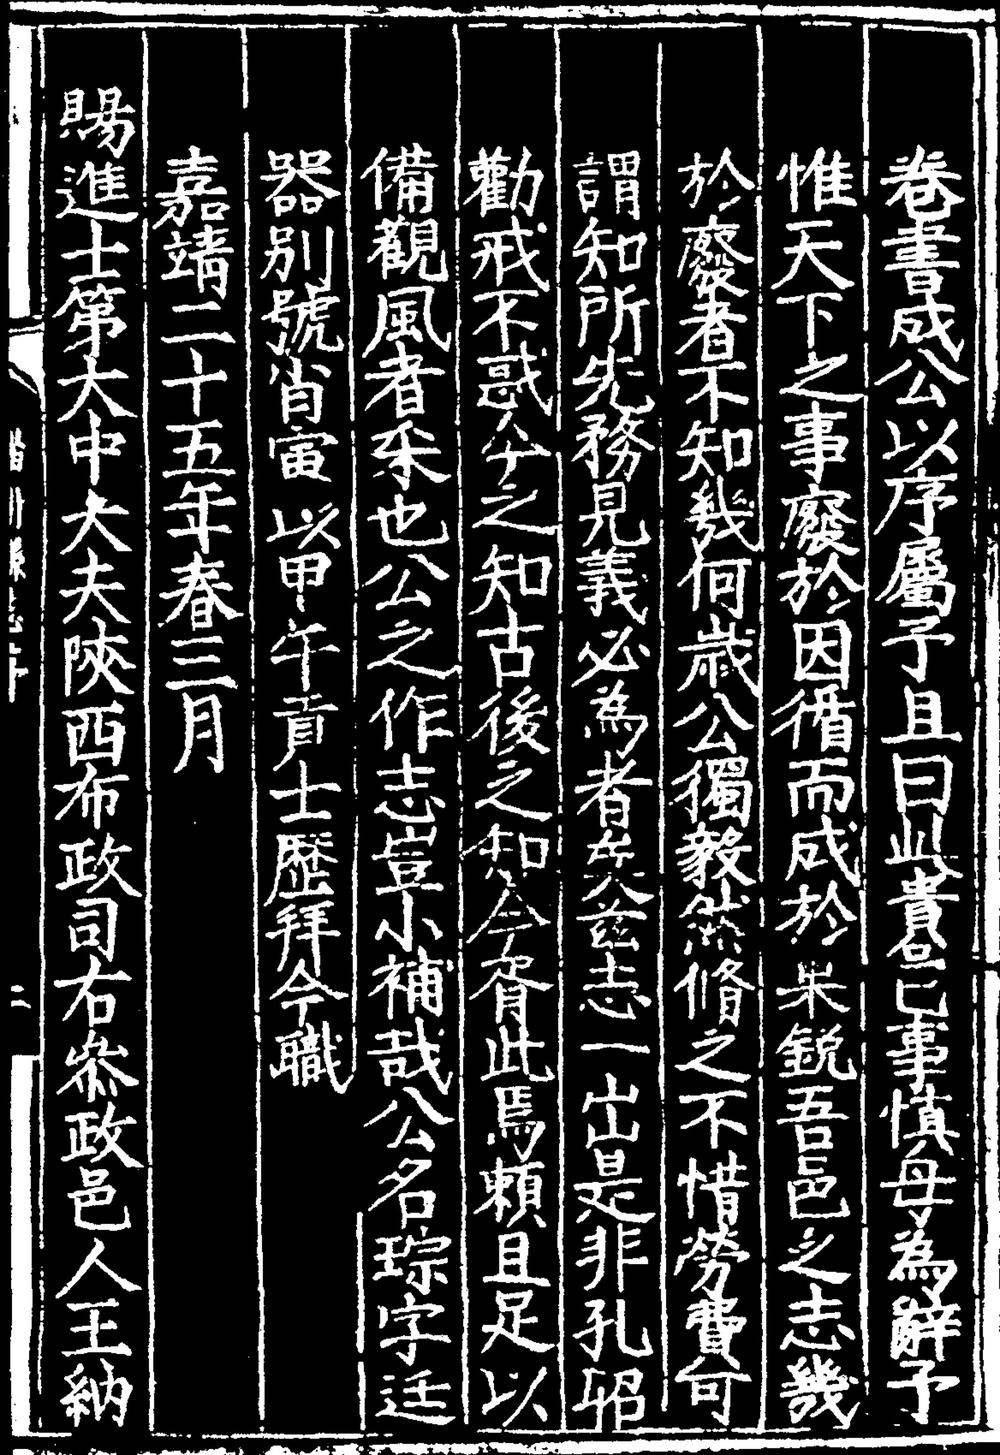 卷書成公以序屬予且曰此貴邑已事慎毋為辭予
惟天下之事廢於因循而成於果銳吾邑之志幾
於廢者不知幾何歲公獨毅然脩之不惜勞費可
謂知所先務見義必為者矣茲志一出是非孔昭
勸戒不惑今之知古後之知今胥此焉賴且足以
備觀風者采也公之作志豈小補哉公名琮字廷
器別號肖寅以甲午貢士歷拜今職
嘉靖二十五年春三月
賜進士第大中大夫陝西布政司右叅政邑人王納